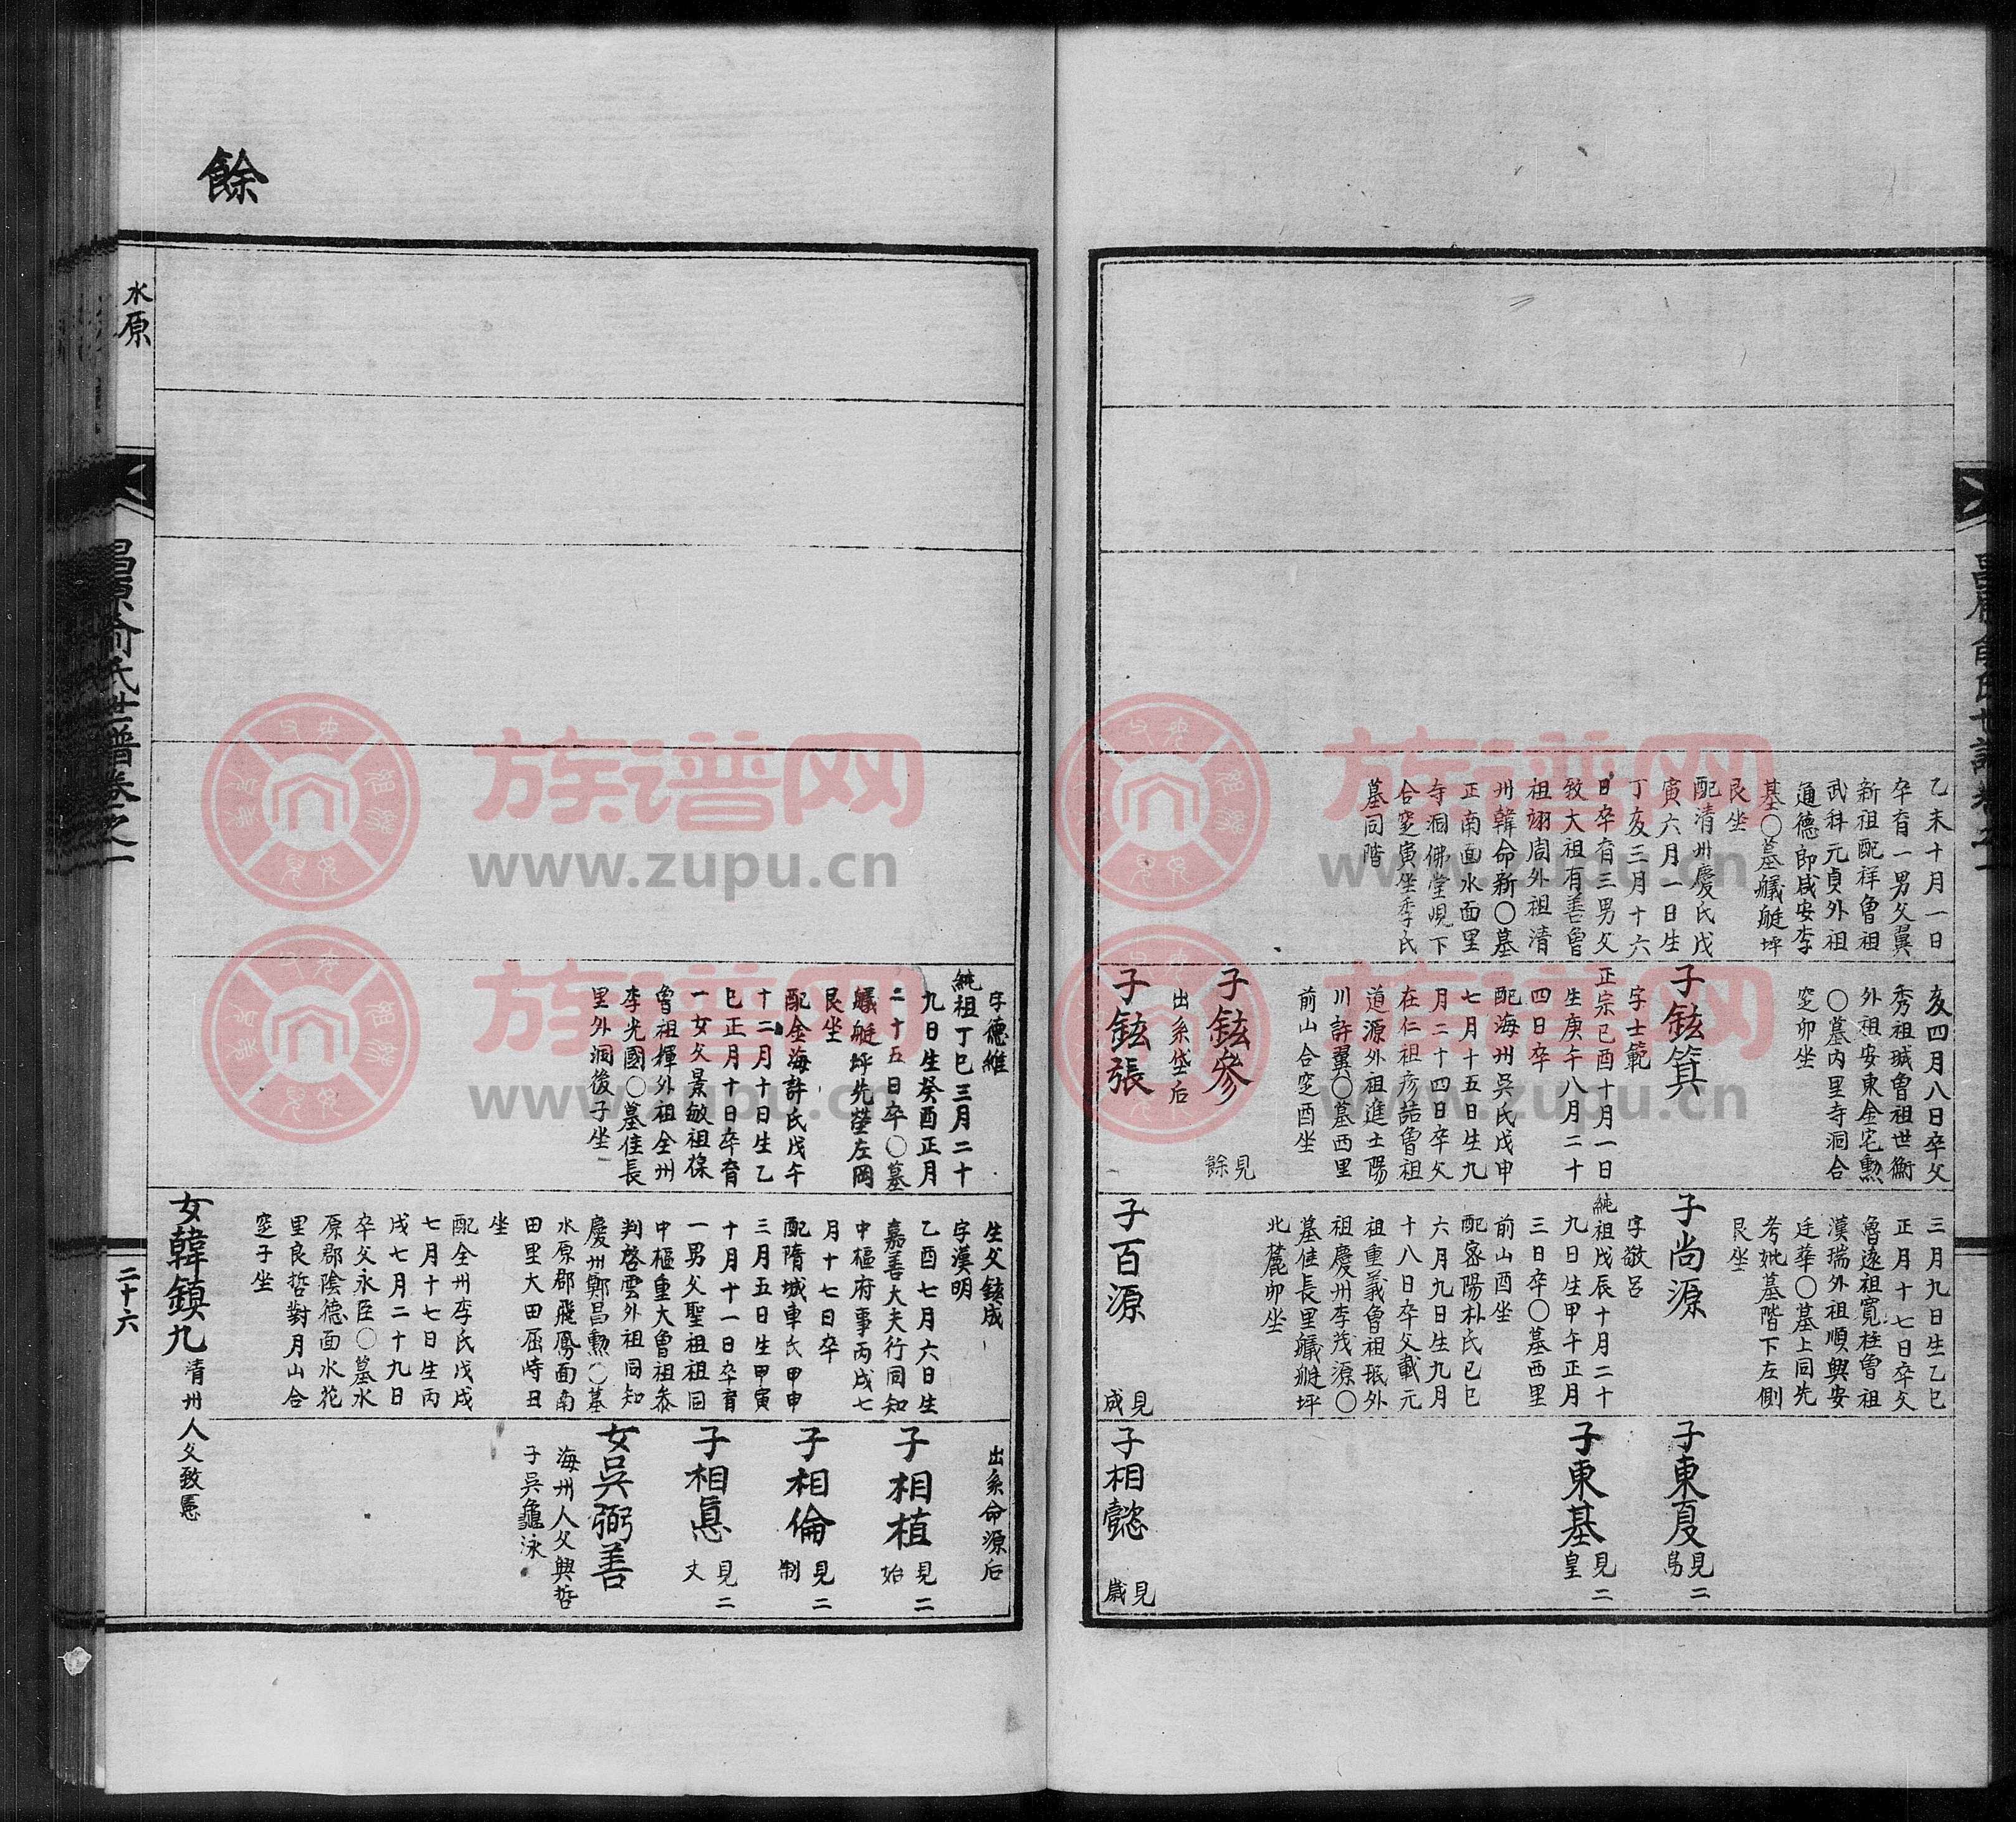 乙未十月一日
卒育一男父翼
新祖配祥曾祖
武科元貞外祖
通德郎咸安李
基〇墓艤艇坪
艮坐
配清州慶氏戊
寅六月一日生
丁亥三月十六
日卒育三男父
致大祖有善曾
祖翊周外祖清
州韓命新〇墓
正南面水面里
寺洞佛堂峴下
合窆寅坐李氏
墓同階
亥四月八日卒父
秀祖珹曾祖世衡
外祖安東金宅勲
〇墓内里寺洞合
窆卯坐
子鉉箕
字士範
正宗己酉十月一日
生庚午八月二十
四日卒
配海州吳氏戊申
七月十五日生九
月二十四日卒父
在仁祖彦喆曾祖
道源外祖進士陽
川許翼〇墓西里
前山合窆酉坐
子鉉參
見
餘
出系岱后
子鉉張
三月九日生乙巳
正月十七日卒父
魯逵祖寬柱曾祖
漢瑞外祖順興安
廷華〇墓上同先
考妣墓階下左側
艮坐
子尚源
字敬呂
純祖戊辰十月二十
九日生甲午正月
三日卒〇墓西里
前山酉坐
配密陽朴氏己巳
六月九日生九月
十八日卒父載元
祖重義曾祖珉外
祖慶州李茂源〇
墓佳長里艤艇坪
北麓卯坐
子百源
見
成
子東夏
見二
子東基
見二
皇
子相懿
見
歲
餘
字德維
純祖丁巳三月二十
九日生癸酉正月
二十五日卒〇墓
艤艇坪先塋左岡
艮坐
配金海許氏戊午
十二月十日生乙
巳正月十日卒育
一女父景敏祖葆
曾祖輝外祖全州
李光國〇墓佳長
里外洞後子坐
生父鉉成
字漢明
乙酉七月六日生
嘉善大夫行同知
中樞府事丙戌七
月十七日卒
配隋城車氏甲申
三月五日生甲寅
十月十一日卒育
一男父聖祖祖同
中樞重大曾祖泰
判啓雲外祖同知
慶州鄭昌勲〇墓
水原郡飛鳳面南
田里大田屈峙丑
坐
配全州李氏戊戌
七月十七日生丙
戌七月二十九日
卒父永臣〇墓水
原郡陰德面水花
里良哲對月山合
窆子坐
女韓鎮九
清州人父致憲
出系命源后
子相植
見二
始
子相倫
見二
制
子相悳
見二
文
女吳弼善
海州人父興哲
子吳龜泳
水原
昌原俞氏世譜卷之一
二十六
族谱网
www.zupu.cn
族谱网
www.zupu.cn
族谱网
www.zupu.cn
族谱网
www.zupu.cn